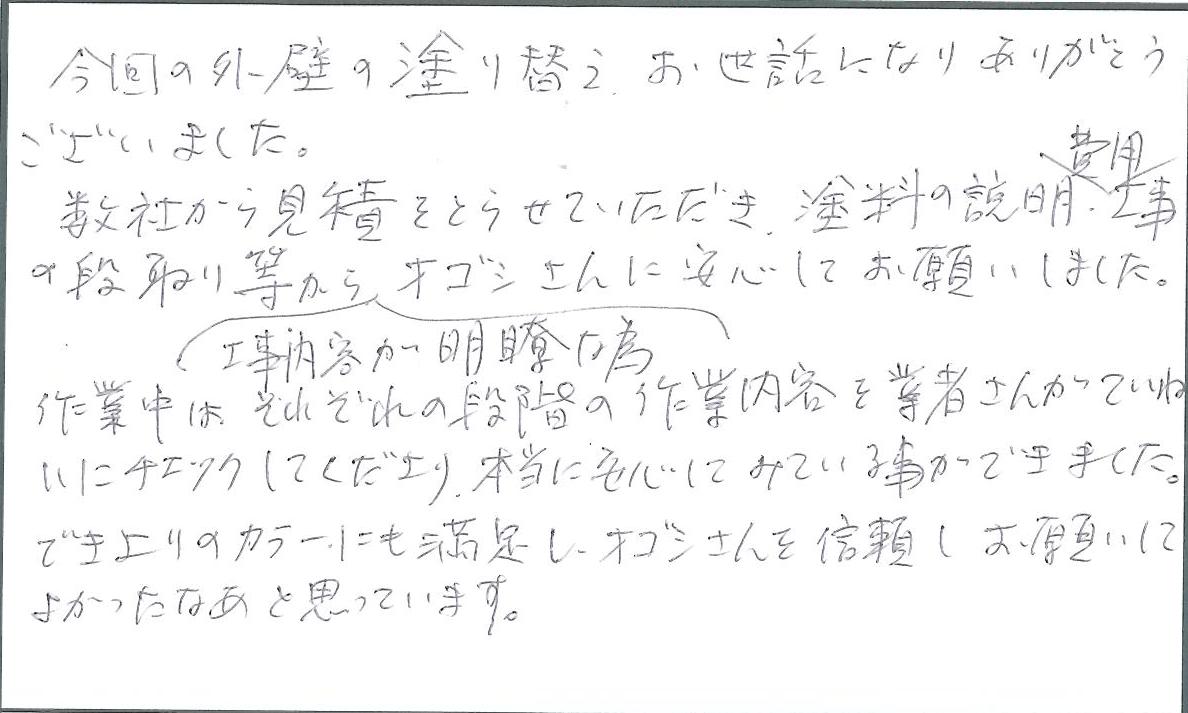 今回の外壁の塗り替え、お世話になりありがとう
ございました。
費用
数社から見積をとらせていただき、塗料の説明、工事
の段取り等からオゴシさんに安心してお願いしました。
工事内容が明瞭な為
作業中はそれぞれの段階の作業内容を業者さんがていね
いにチェックしてくださり、本当に安心してみている事ができました。
でき上りのカラーにも満足し、オゴシさんを信頼しお願いして
よかったなあと思っています。